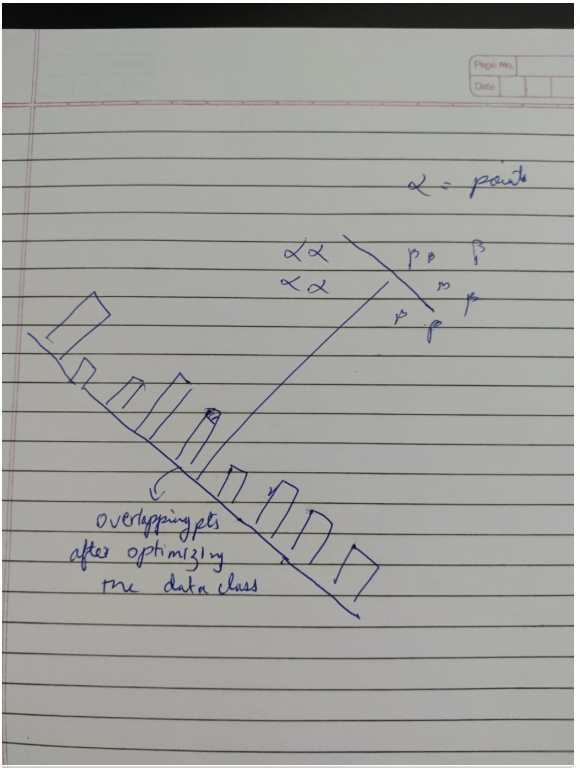 Page No.
Date
α = points
α α
α α
β β β
β β
β β
overlapping pts
after optimizing
the data class